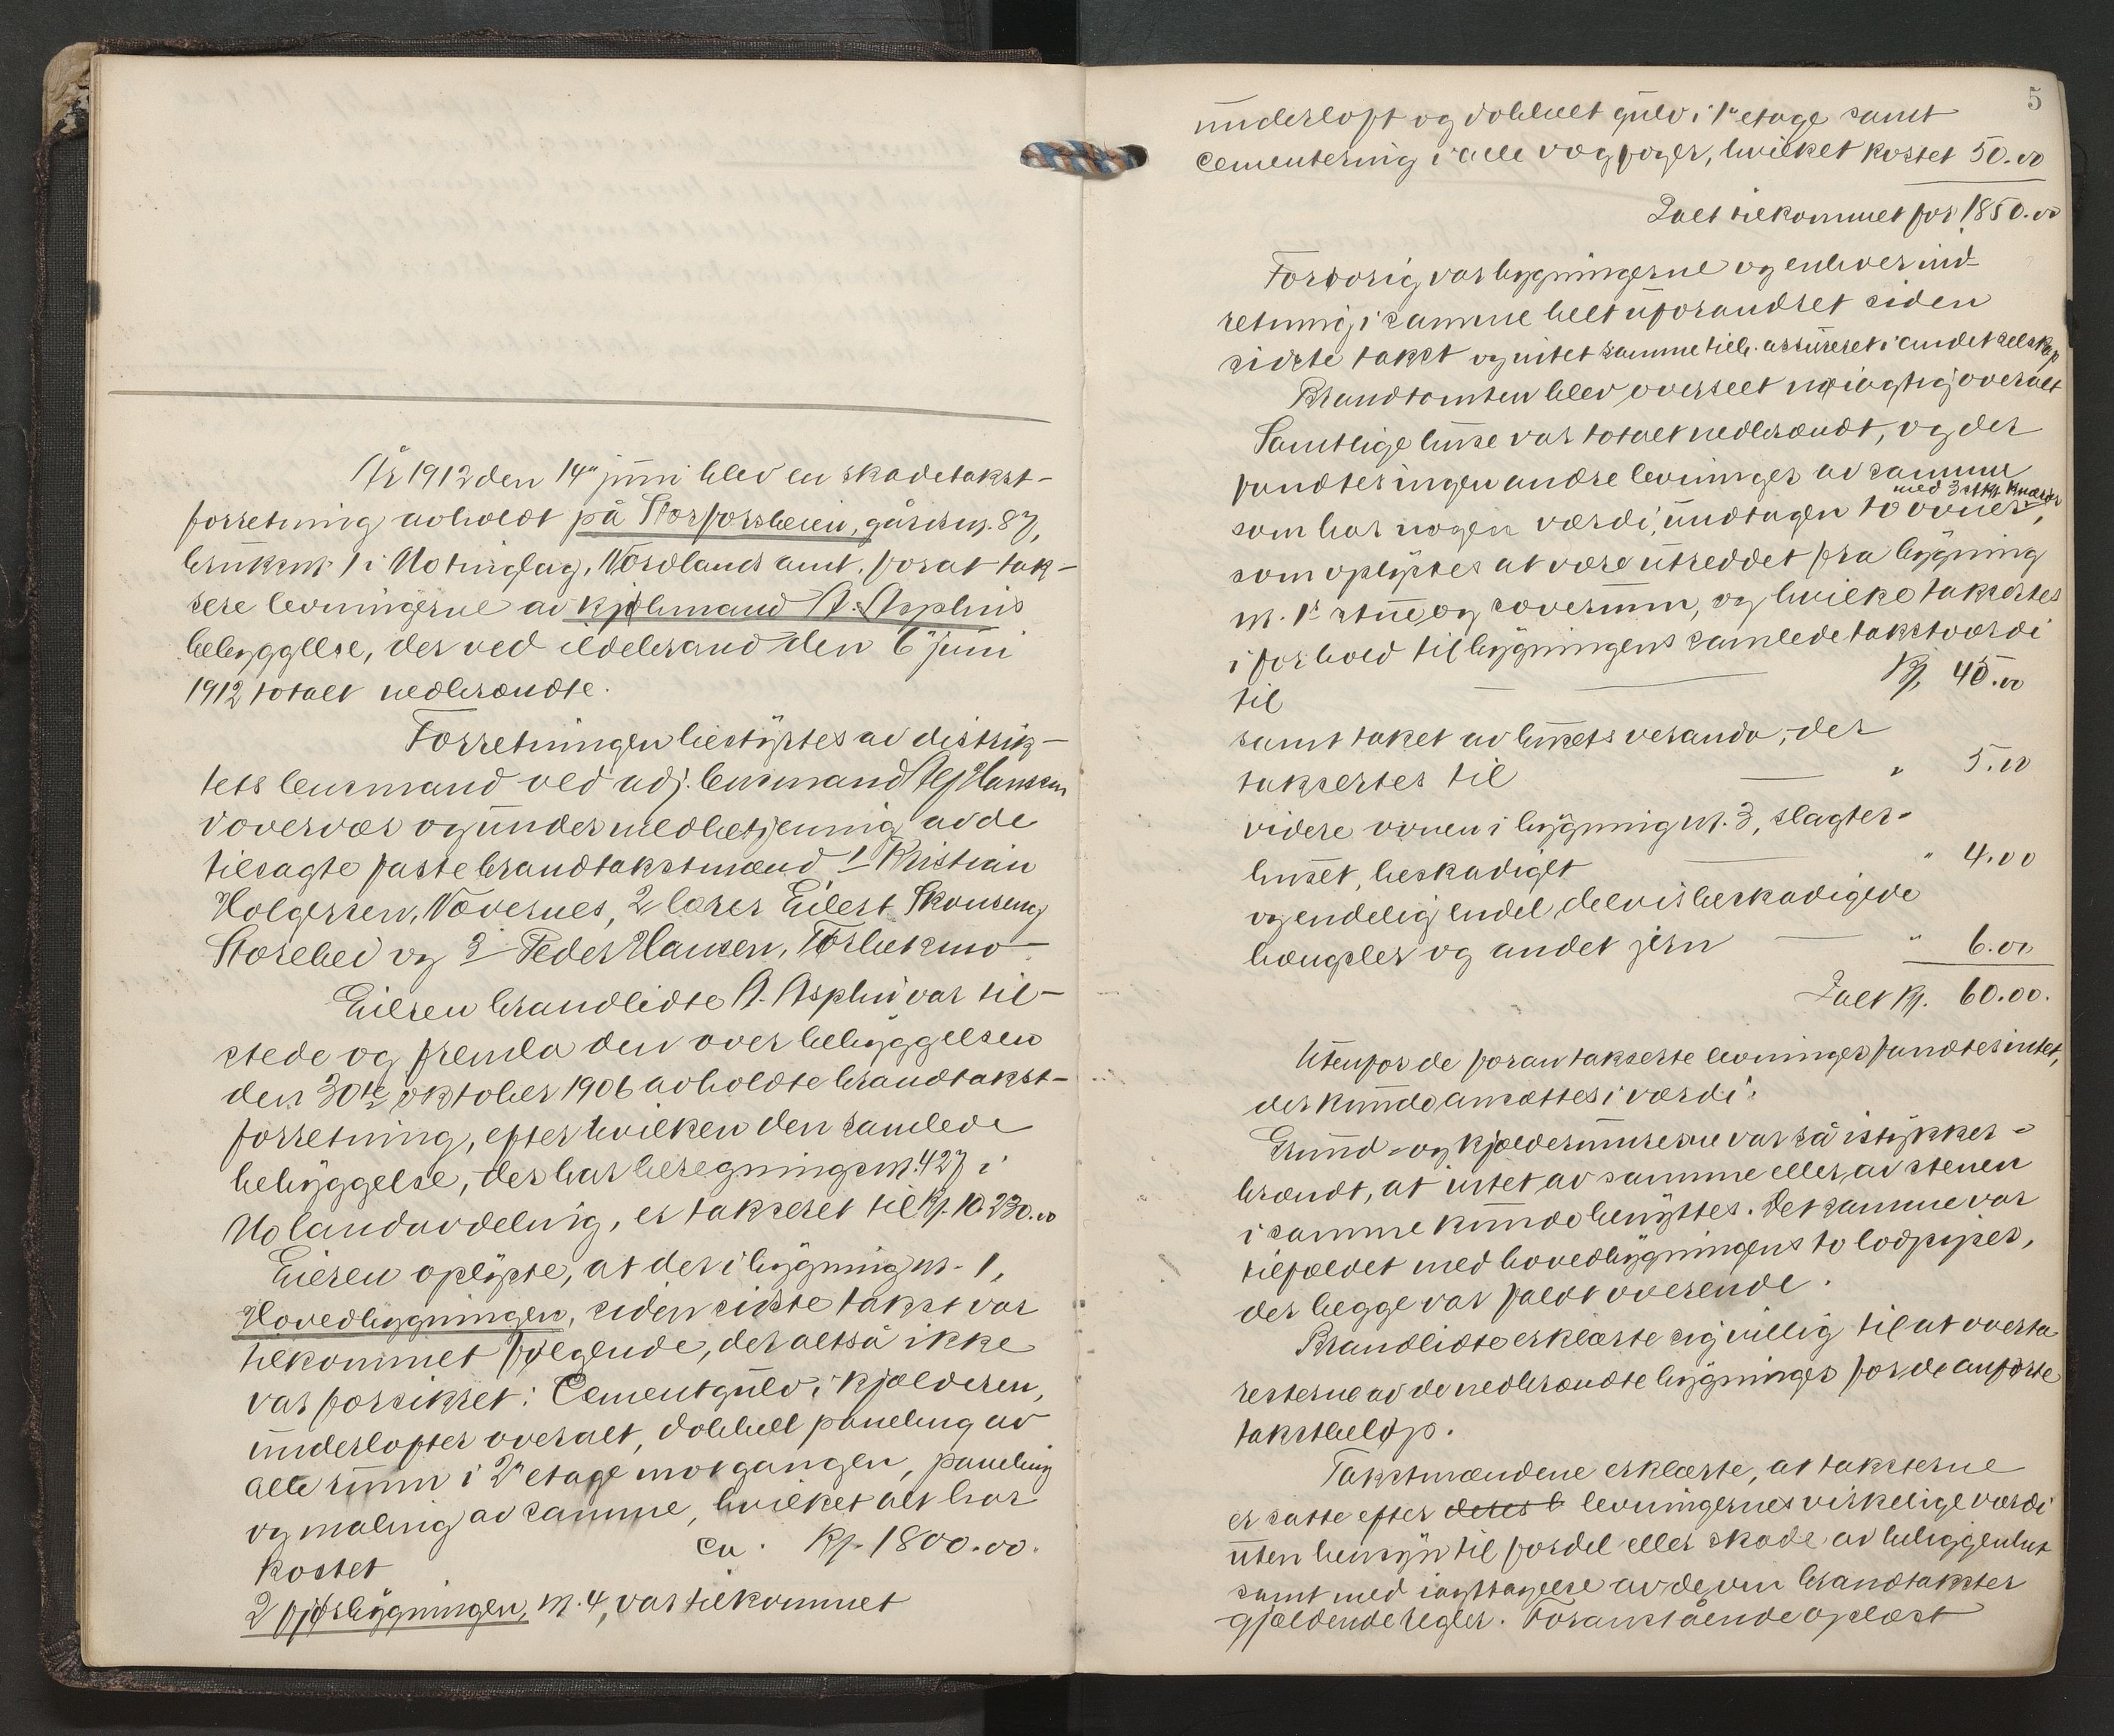 År 1912 den 14" juni blev en skadetakst-
forretning avholdt på Storforsheien, gårdsnr. 87,
bruksnr. 1 i Mo tinglag, Nordlands amt, for at tak-
sere levningerne av kjøbmand A. Asphins
bebyggelse, der ved ildebrand den 6" juni
1912 totalt nedbrændte.
Forretningen bestyrtes av distrik-
tets lensmand ved adj. lensmand Alf Hanssen
i overvær og under medbetjening av de
tilsagte faste brandtakstmænd 1 Kristian
Holgersen, Nævernes, 2 lærer Eilert Skonseng
Storebei og 3 Peder Hansen, Tørbekmo.
Eieren brandlidte A. Asphin var til-
stede og fremla den over bebyggelsen
den 30te oktober 1906 avholdte brandtakst-
forretning, efter hvilken den samlede
bebyggelse, der har beregningsnr. 427 i
Mo landavdeling, er takseret til Kr. 10.230.00
Eieren oplyste, at der i bygning nr. 1,
Hovedbygningen, siden sidste takst var
tilkommet følgende, der altså ikke
var forsikret: Cementgulv i kjælderen,
underlofter overalt, dobbelt paneling av
alle rum i 2" etage mot gangen, paneling
og maling av samme, hvilket alt har
kostet ca. Kr. 1800.00.
2 fjøsbygningen, nr. 4, var tilkommet
5
underloft og dobbelt gulv i 1" etage samt
cementering i alle vægfoger, hvilket kostet 50.00
Ialt tilkommet for 1850.00
Forøvrig var bygningerne og enhver ind-
retning i samme helt uforandret siden
sidste takst og intet samme tilh. assureret i andet selskap
Brandtomten blev overseet nøiagtig overalt
Samtlige huse var totalt nedbrændt, og der
fandtes ingen andre levninger av samme
med 3 stkr. knærør
som har nogen værdi, undtagen to ovner,
som oplystes at være utreddet fra bygning
nr. 1s stue og soverum, og hvilke taksertes
i forhold til bygningens samlede takstværdi
til Kr. 45.00
samt taket av husets veranda, der
taksertes til " 5.00
videre ovnen i bygning nr. 3, slagter-
huset, beskadiget " 4.00
og endelig endel delvis beskadigede
hængsler og andet jern " 6.00
Ialt Kr. 60.00.
Utenfor de foran takserte levninger fandtes intet,
der kunde ansættes i værdi.
Grund- og kjældermurene var så istykker-
brændt, at intet av samme eller av stenen
i samme kunde benyttes. Det samme var
tilfældet med hovedbygningens to lodpiper,
der begge var faldt overende.
Brandlidte erklærte sig villig til at overta
resterne av de nedbrændte bygninger for de anførte
takstbeløp.
Takstmændene erklærte, at taksterne
er satte efter deres b levningernes virkelige værdi
uten hensyn til fordel eller skade av beliggenhet
samt med iagttagelse av de om brandtakster
gjældende regler. Foranstående oplæst